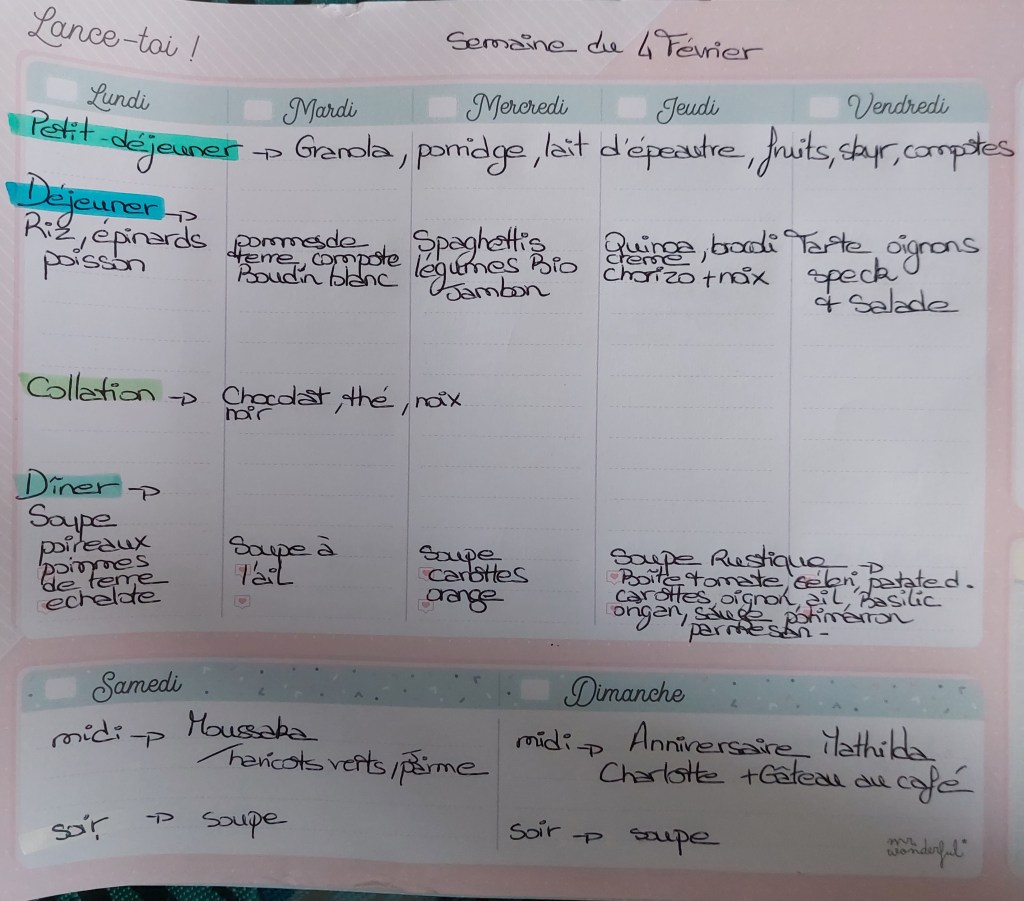 Lance-toi !
Semaine du 4 Février
Lundi
Mardi
Mercredi
Jeudi
Vendredi
Petit-déjeuner → Granola, porridge, lait d'épeautre, fruits, skyr, compotes
Déjeuner →
Riz, épinards
poisson
pommes de
terre compote
Boudin blanc
Spaghettis
légumes Bio
Jambon
Quinoa, brocoli
crème
chorizo + noix
Tarte oignons
speck
+ Salade
Collation → Chocolat, thé, noix
noir
Dîner →
Soupe
poireaux
pommes
de terre
echalote
Soupe à
l'ail
soupe
carottes
orange
Soupe Rustique →
Boîte tomate, céleri, patate d.
carottes, oignon, ail, Basilic
origan, sauge potimarron
parmesan -
Samedi
midi → Moussaka
/haricots verts, parme
soir → soupe
Dimanche
midi → Anniversaire Mathilda
Charlotte + Gâteau au café
soir → soupe
mr
wonderful*